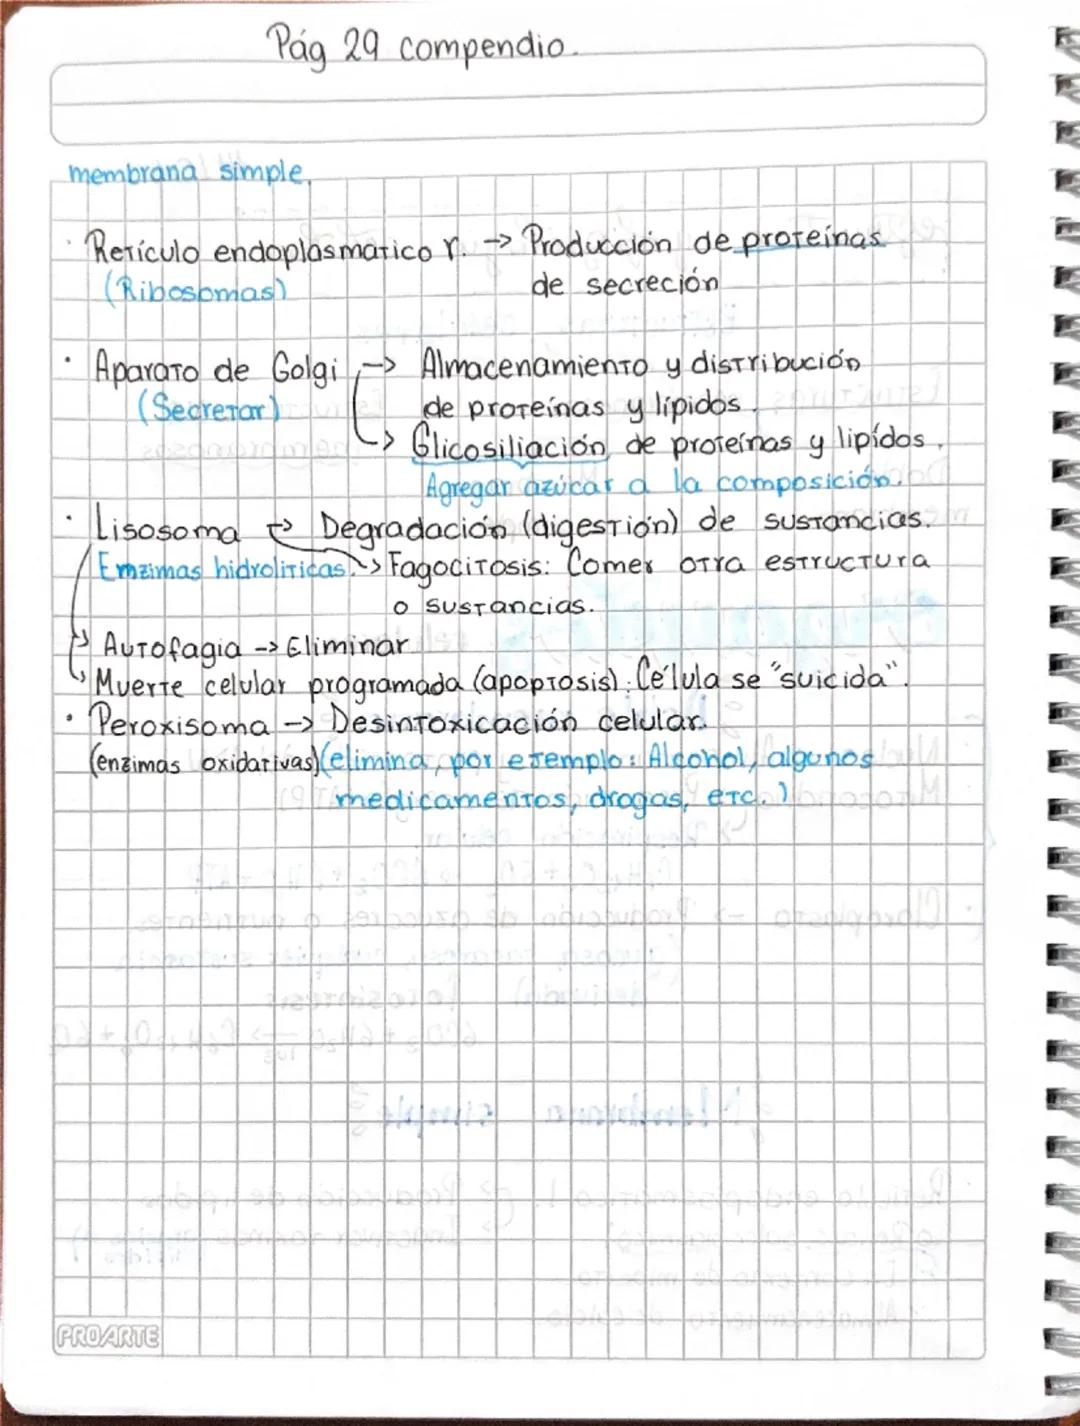 Pág 29 compendio.
membrana simple.
· Retículo endoplasmatico r. → Producción de proteínas
(Ribosomas) de secreción
· Aparato de Golgi → Almacenamiento y distribución
(Secretar) de proteínas y lípidos.
→ Glicosiliación de proteínas y lipídos.
Agregar azúcar a la composición.
· Lisosoma → Degradación (digestión) de sustancias.
Enzimas hidroliticas. → Fagocitosis: Comer otra estructura
o sustancias.
→ Autofagia → Eliminar
→ Muerte celular programada (apoptosis): Célula se "suicida".
· Peroxisoma → Desintoxicación celular.
(enzimas oxidativas) (elimina, por ejemplo: Alcohol, algunos
medicamentos, drogas, etc.)
PROARTE